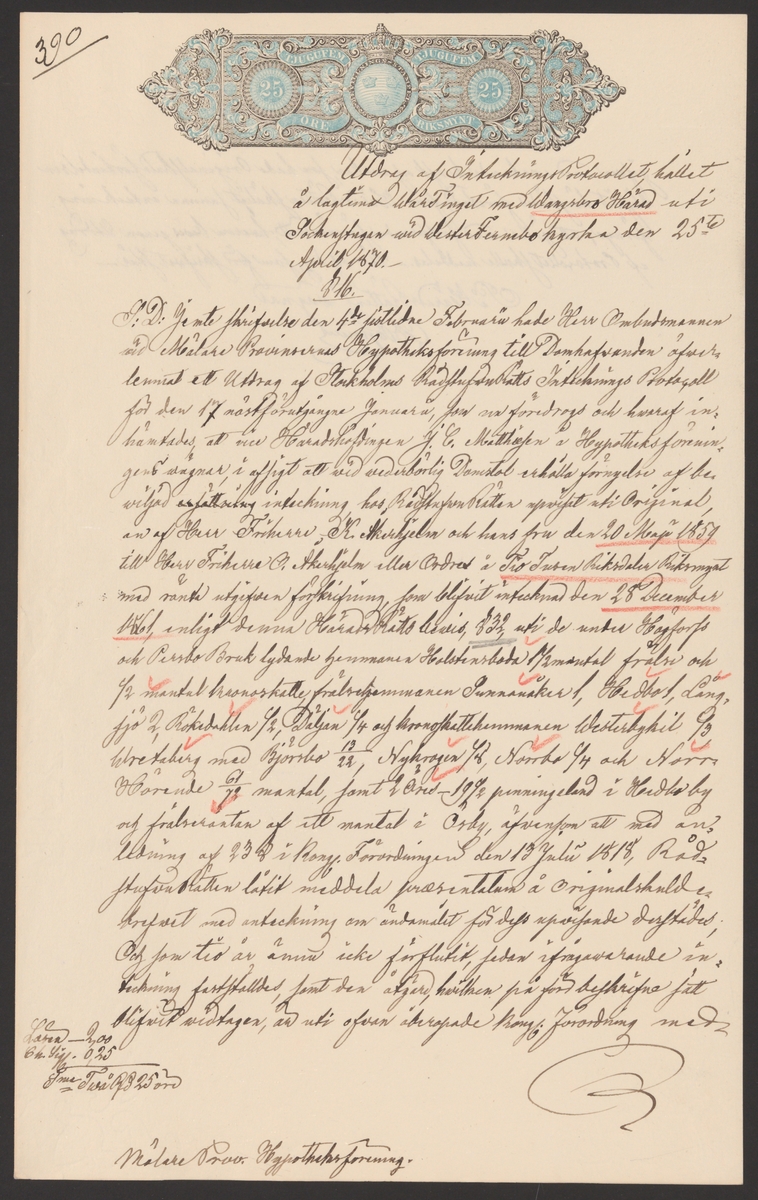 390
TJUGUFEM TJUGUFEM
25 25
ÖRE RIKSMYNT
Utdrag af InteckningsProtocollet, hållet
å lagtima Wårtinget med Wangsbro Härad uti
Sockenstugan wid Wester Fernebo kyrka den 25te
April 1870.-
§16.
S: D: Jemte skrifwelse den 4de sistlidne Februarii hade Herr Ombudsmannen
wid Mälare Provinsernas Hypotheksförening till Domhafwanden öfwer-
lemnat ett Utdrag af Stockholms RådstufwuRätts Intecknings Protocoll
för den 17 nästförutgångne Januarii, som nu föredrogs och hwaraf in-
hämtades, at vice Häradshöfdingen J. C. Matthiesen å Hypotheksförenin-
gens wägnar i afsigt att wid wederbörlig Domstol erhålla förnyelse af be-
wiljad inteckning hos RådstufwuRätten uppwist uti Original,
en af Herr Friherre K. Åkerhjelm och hans fru den 20 Maji 1859
till Herr Friherre O. Åkerhjelm eller Ordres å Tio Tusen Riksdaler Riksmynt
med ränta utgifwen förskrifning, som blifwit intecknad den 28 December
1861, enligt denna HäradsRätts bewis, §32, uti de under Hagfors
och Persbo Bruk lydande hemmanen Holstensboda 1 1/2 mantal frälse och
1/2 mantal kronoskatte, frälsehemmanen Sunnanåker 1, Hedbo 1, Lång-
sjö 2, Kokedahlen 1/2, Däljan 1/4 och kronoskattehemmanen Westerbykil 1/3
Uretaberg med Björsbo 13/22, Nyhagen 1/8, Norrbo 1/4 och Norr-
Hörende 61/72 mantal, samt 2 Öres - 19 1/2 penningeland i Hedbo by
og frälseräntan af ett mantal i Orsby, äfwensom att med an-
ledning af 23 § i Kongl. Förordningen den 13 Julii 1818, Råd-
stufwuRätten låtit meddela præsentatum å Originalskulde-
brefwet med anteckning om ändamålet för dess uppwisande derstädes;
Och som tio år ännu icke förflutit, sedan ifrågawarande in-
teckning fastställdes, samt den åtgärd, hwilken på förbeskrifne sätt
blifwit widtagen, är uti ofwan åberopade Kongl. Förordning med-
Lösen - 2,00
Ch. Sig. - 0,25
Sma Twå Rd 25 öre
Mälare Prov. Hypotheksförening.